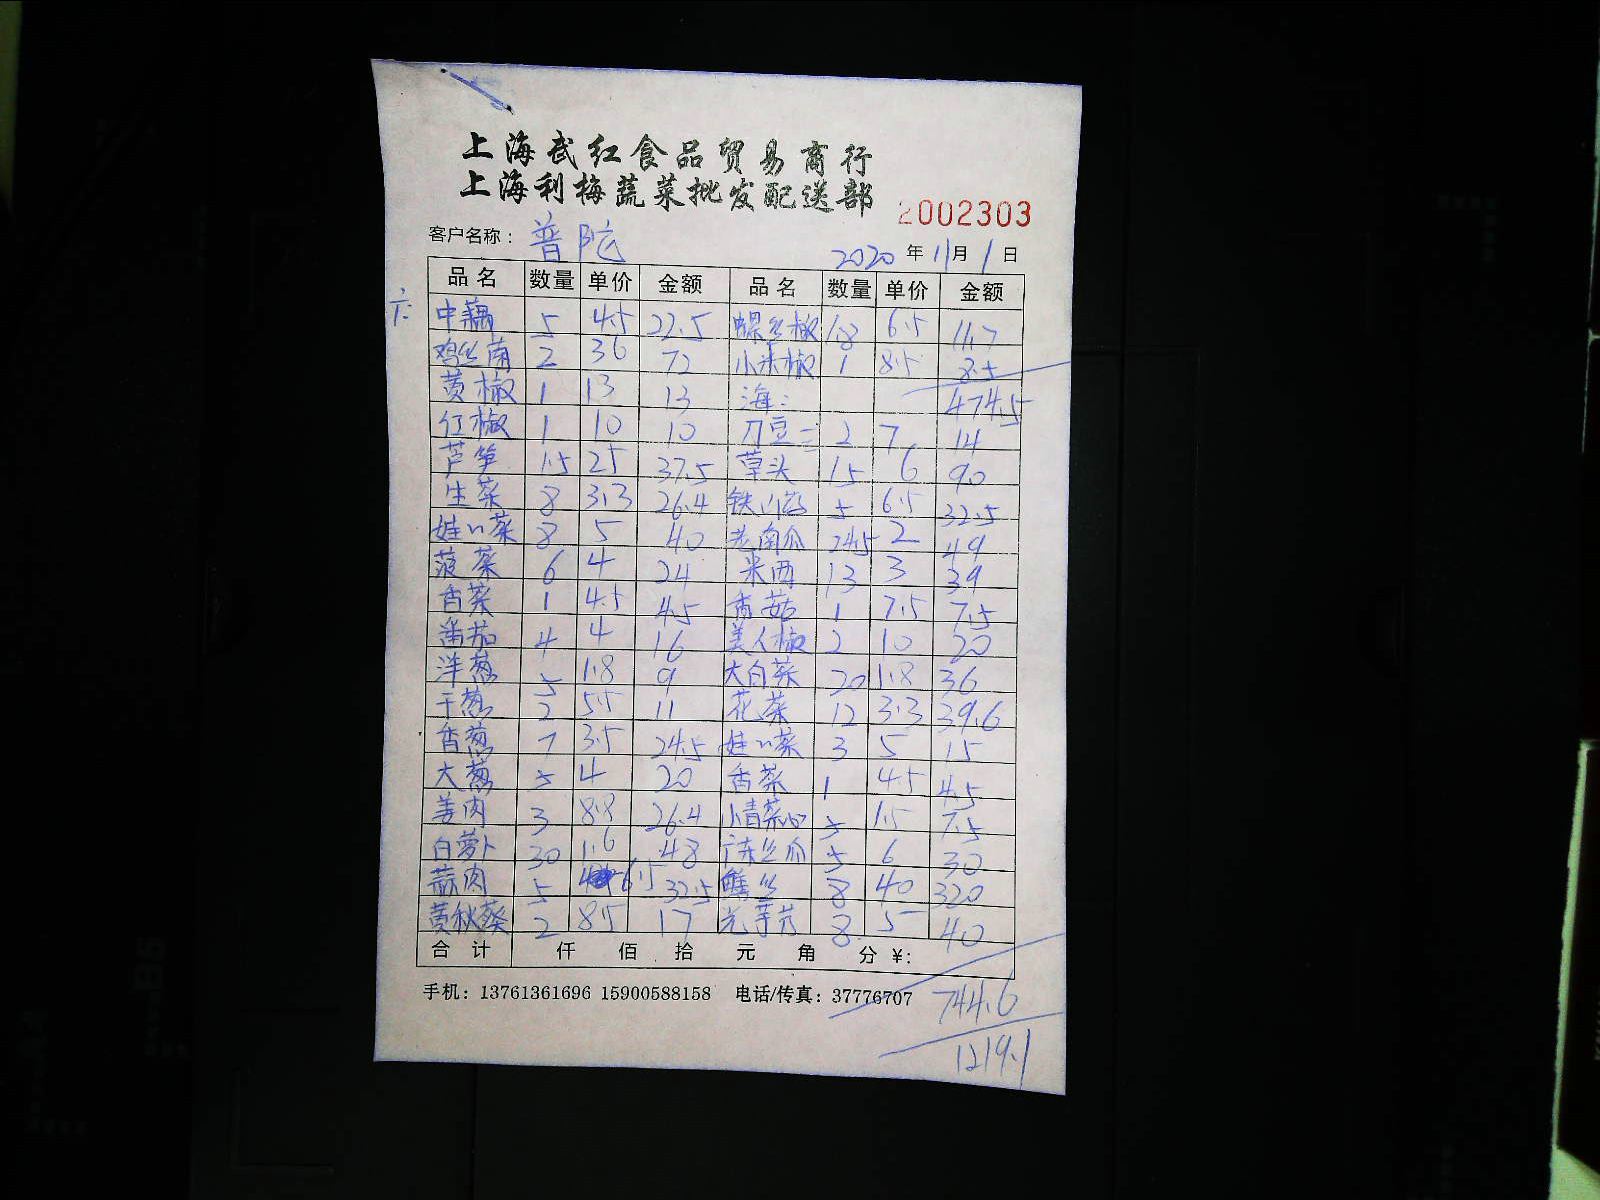 上海武红食品贸易商行
上海利梅蔬菜批发配送部
2002303
客户名称：普陀 2020年11月1日
品名 数量 单价 金额 品名 数量 单价 金额
中藕 5 4.5 22.5 螺丝椒 1.8 6.5 11.7
鸡丝菌 2 36 72 小米椒 1 8.5 8.5
黄椒 1 13 13 海： 474.5
红椒 1 10 10 刀豆 2 7 14
芦笋 1.5 25 37.5 草头 15 6 90
生菜 8 3.3 26.4 铁山药 5 6.5 32.5
娃娃菜 8 5 40 老南瓜 24.5 2 49
菠菜 6 4 24 米西 13 3 39
香菜 1 4.5 4.5 香菇 1 7.5 7.5
番茄 4 4 16 美人椒 2 10 20
洋葱 5 1.8 9 大白菜 20 1.8 36
干葱 2 5.5 11 花菜 12 3.3 39.6
香葱 7 3.5 24.5 娃娃菜 3 5 15
大葱 5 4 20 香菜 1 4.5 4.5
姜肉 3 8.8 26.4 小青菜 5 1.5 7.5
白萝卜 30 1.6 48 广东丝瓜 5 6 30
蒜肉 5 6.5 32.5 丝 8 40 320
黄秋葵 2 8.5 17 光芋艿 8 5 40
合计 仟 佰 拾 元 角 分 ¥:
手机：13761361696 15900588158 电话/传真：37776707
744.6
1219.1